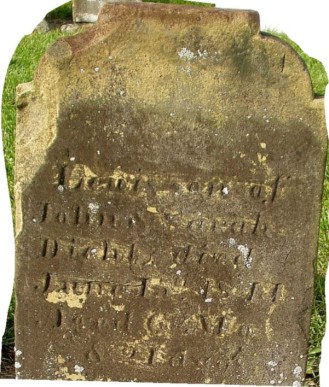 Lewis son of
John & Sarah
Diehl, died
June 1844
Aged 6 Mo.
& 21 d's